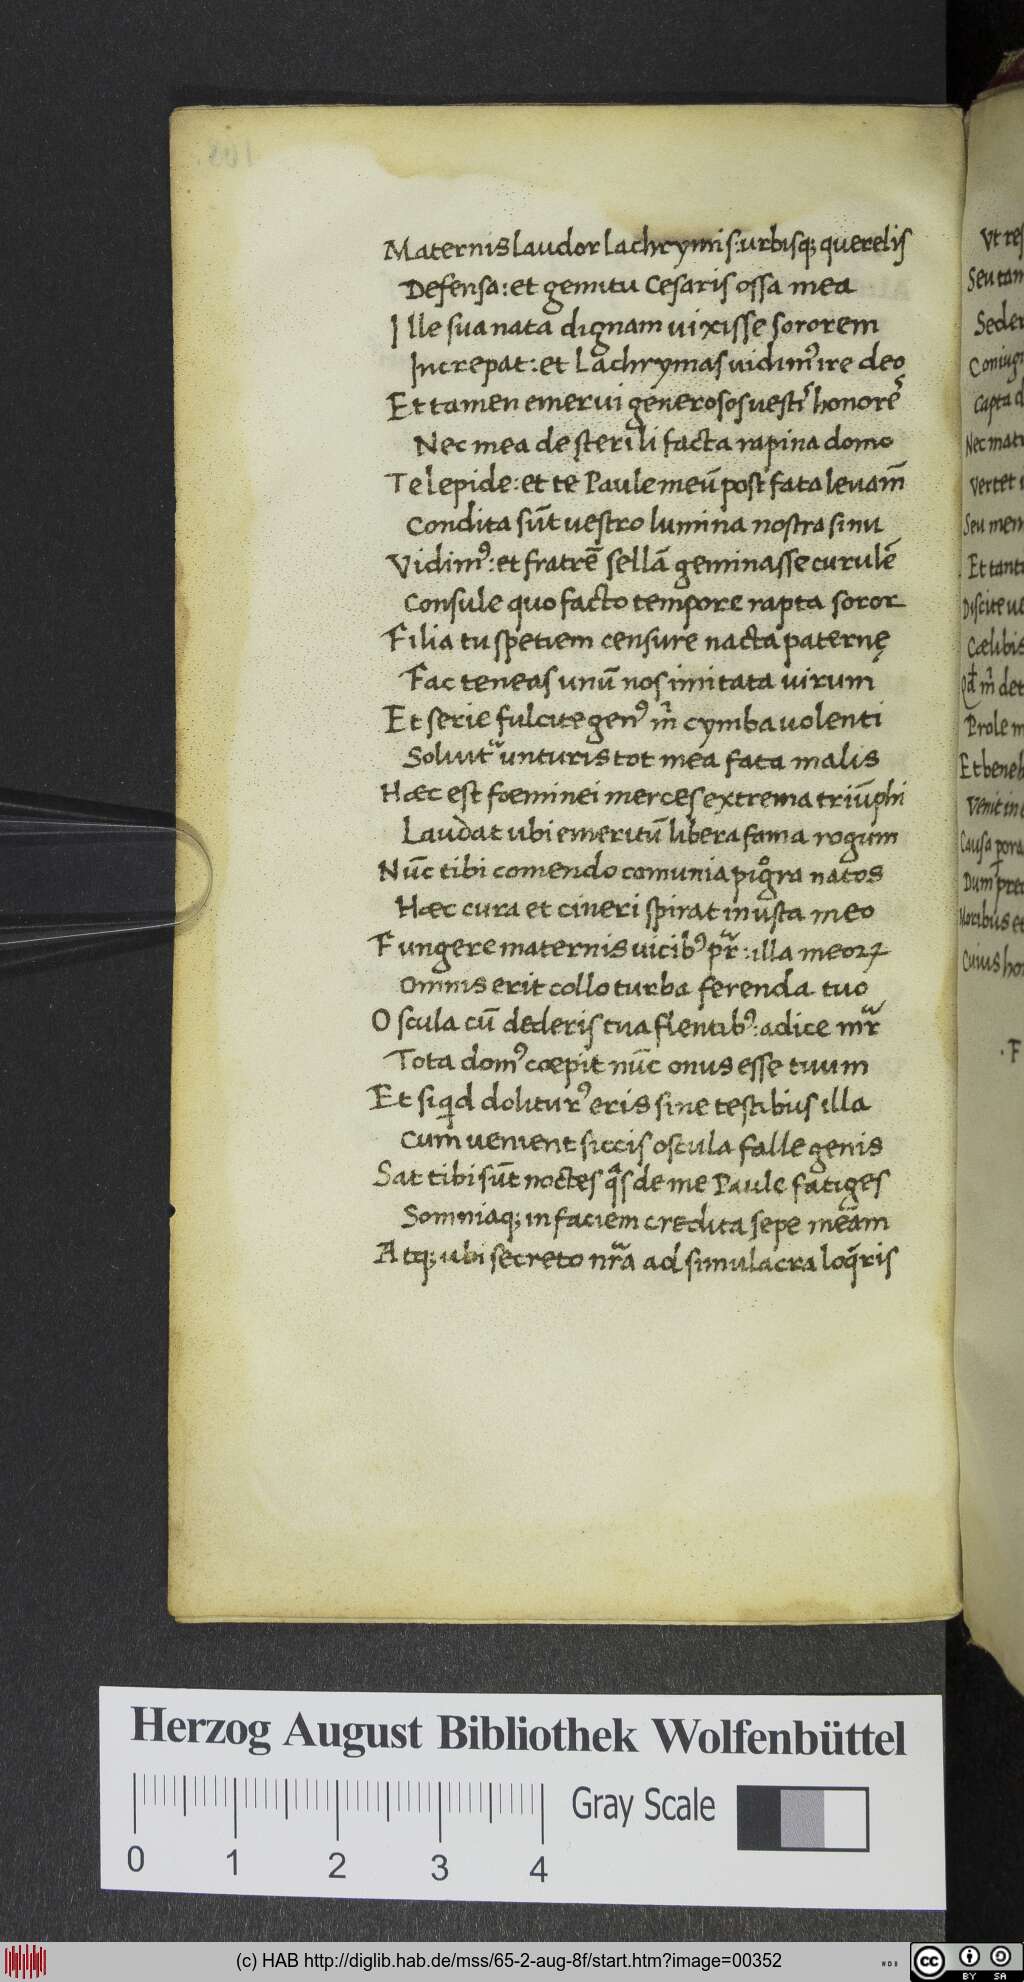 Maternis laudor lachrymis: urbisq; querelis
Defensa: et gemitu Cesaris ossa mea
Ille sua nata dignam uixisse sororem
Increpat: et Lachrymas uidimꝰ ire deo
Et tamen emerui generosos uestiˢ honorēˢ
Nec mea de sterili facta rapina domo
Te lepide: et te Paule meū post fata leuam̄
Condita sūt uestro lumina nostra sinu
Vidimꝰ: et fratrē sellā geminasse curulē
Consule quo facto tempore rapta soror
Filia tu spetiem censure nacta paternę
Fac teneas unū nos imitata uirum
Et serie fulcite genꝰ m̄ cymba uolenti
Soluit᷑ unturis tot mea fata malis
Hæc est foeminei merces extrema triūphi
Laudat ubi emeritū libera fama rogum
Nūc tibi comendo comunia pigͦra natos
Hæc cura et cineri spirat inusta meo
Fungere maternis uicibꝰ pr̄: illa meoꝝ
Omnis erit collo turba ferenda tuo
Oscula cū dederis tua flentibꝰ: adice mr̄
Tota domꝰ coepit nūc onus esse tuum
Et siqd doliturꝰ eris sine testibus illa
Cum uenient siccis oscula falle genis
Sat tibi sūt noctes qͣs de me Paule fatiges
Somniaq; in faciem credita sepe meam
Atq; ubi secreto nr̄a ad simulacra loq̄ris
Vt res
Seu tam
Seder
Coniugi
Capta d
Nec matr
Vertet
Seu mem
Et tant
Discite
Cælibis
m̄ det
Prole m
Et bene
Venit in
Causa
Dum
Moribus et
Cuius hon
·F
Herzog August Bibliothek Wolfenbüttel
0 1 2 3 4
Gray Scale
(c) HAB http://diglib.hab.de/mss/65-2-aug-8f/start.htm?image=00352
cc BY SA